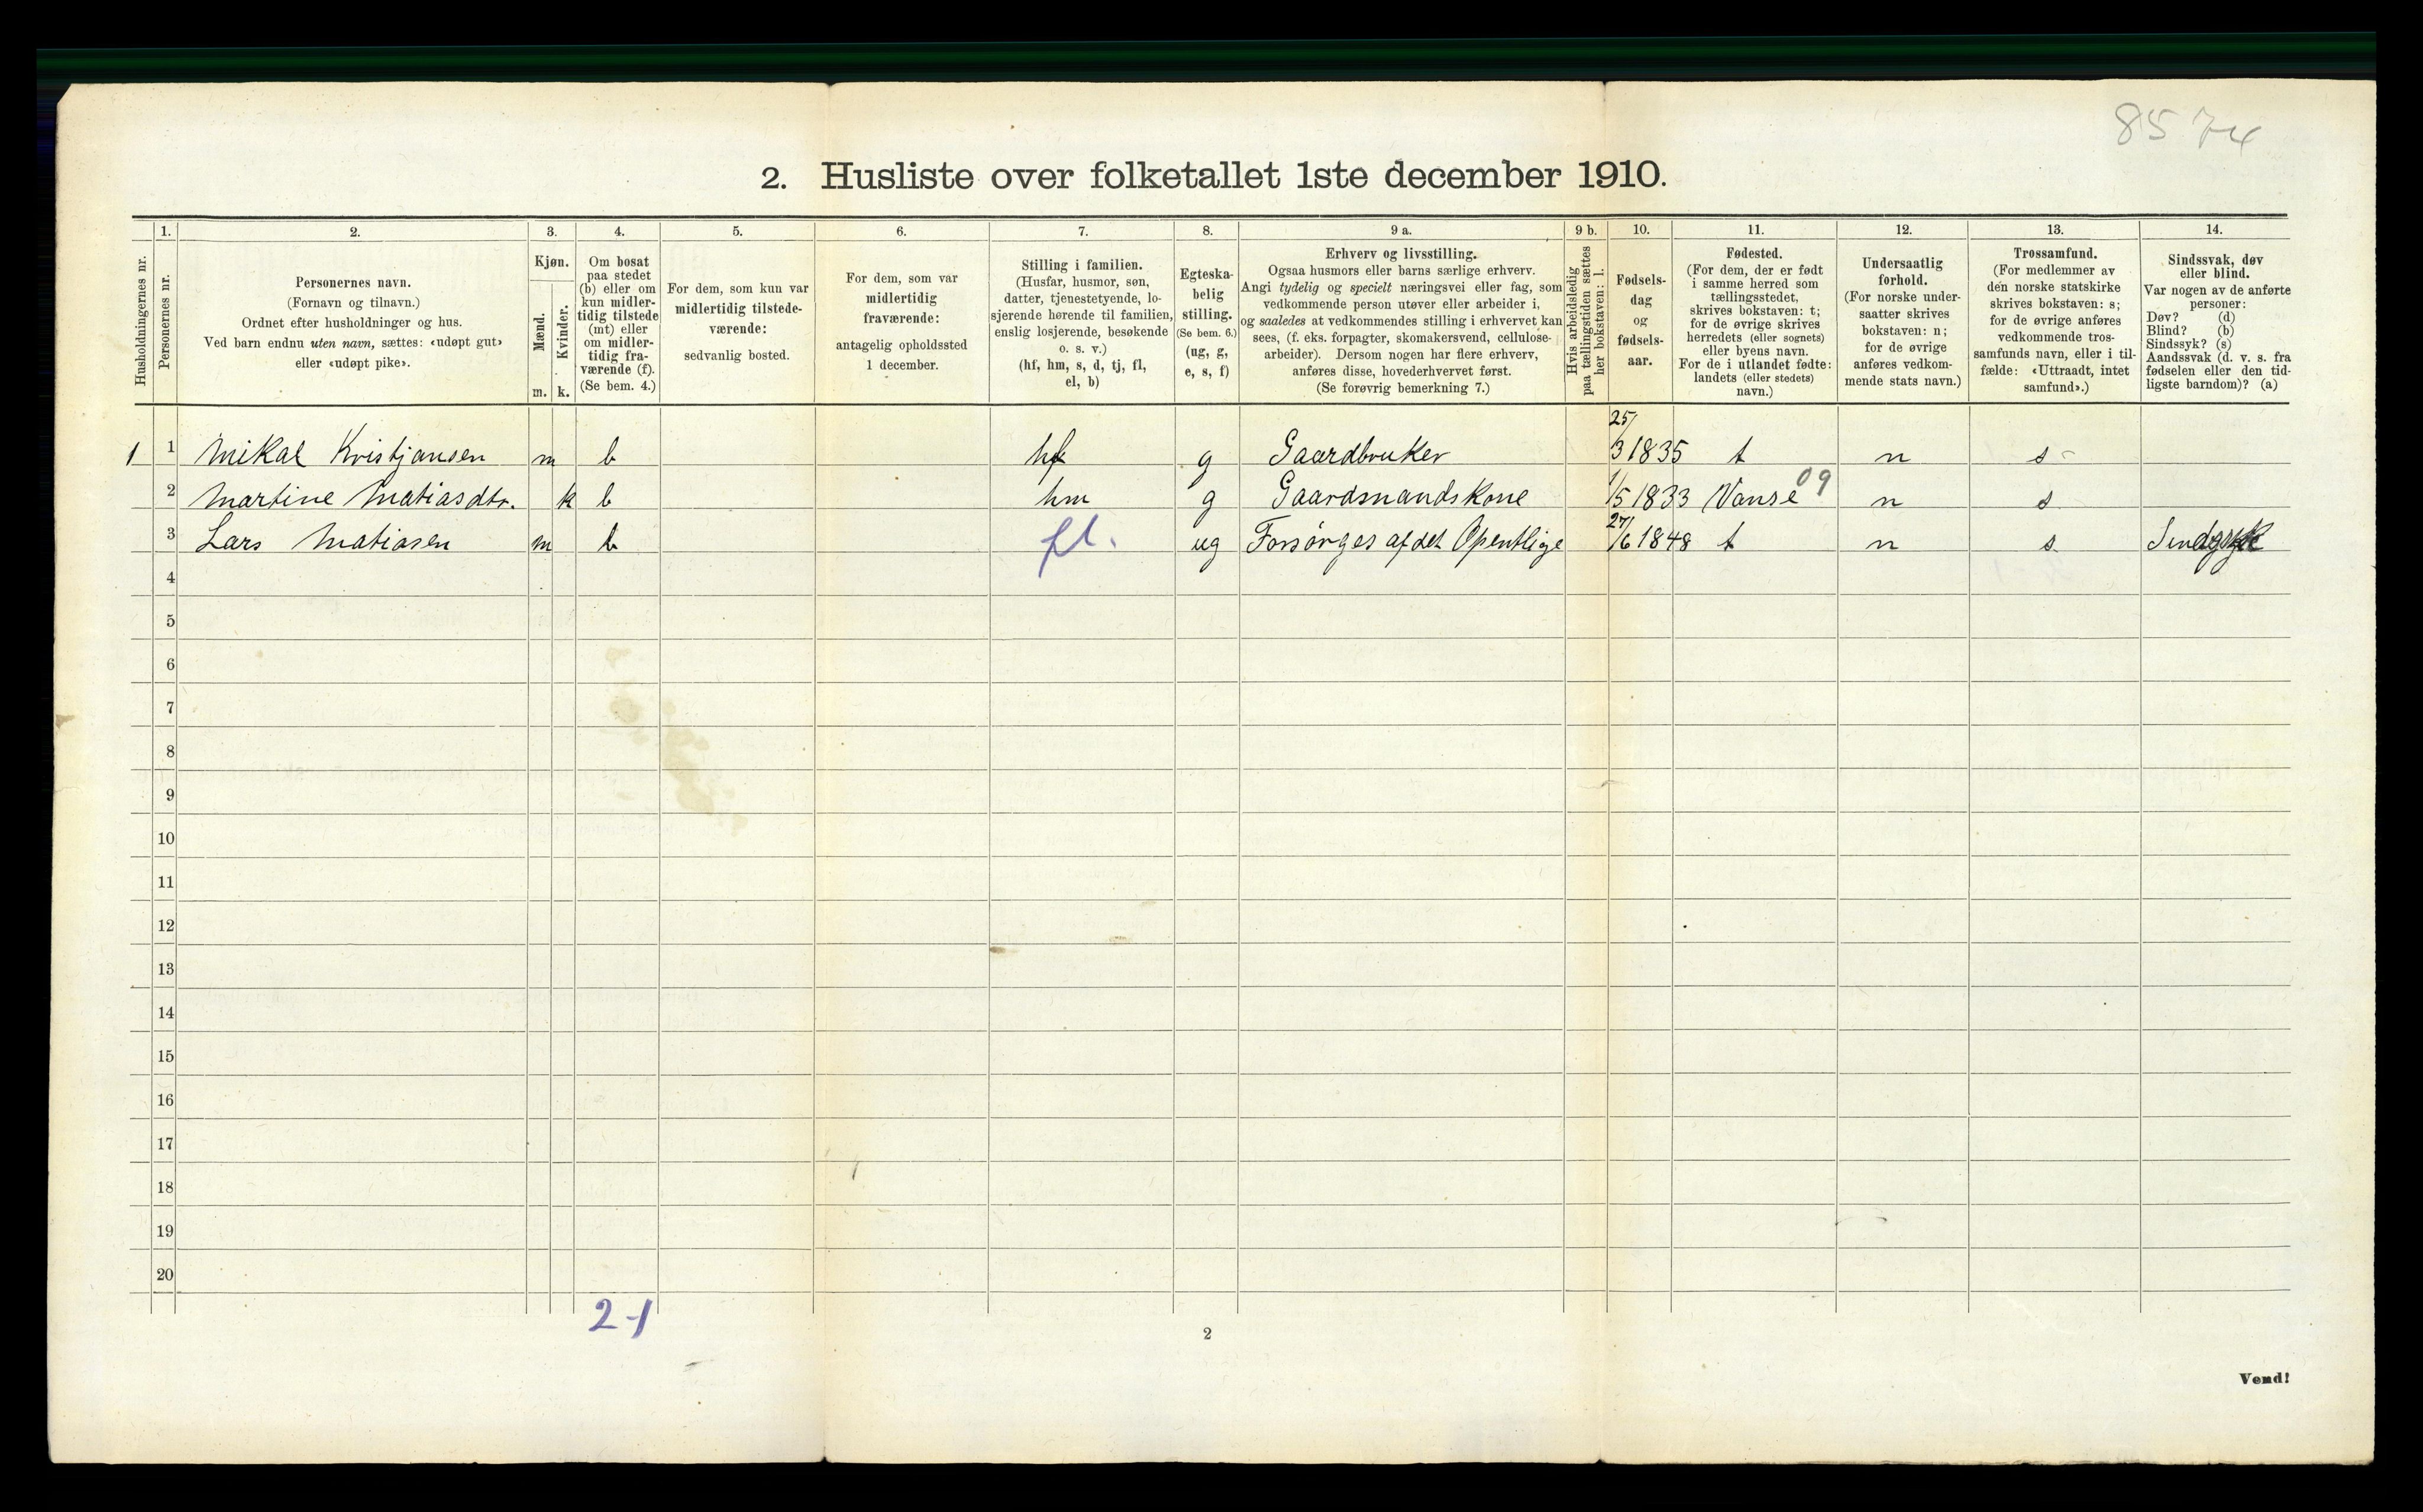 8574
2. Husliste over folketallet 1ste december 1910.
Husholdningernes nr.
1.
Personernes nr.
2.
Personernes navn.
(Fornavn og tilnavn.)
Ordnet efter husholdninger og hus.
Ved barn endnu uten navn, sættes: «udøpt gut»
eller «udøpt pike».
3.
Kjøn.
Mænd.
Kvinder.
m. k.
4.
Om bosat
paa stedet
(b) eller om
kun midler-
tidig tilstede
(mt) eller
om midler-
tidig fra-
værende (f).
(Se bem. 4.)
5.
For dem, som kun var
midlertidig tilstede-
værende:
sedvanlig bosted.
6.
For dem, som var
midlertidig
fraværende:
antagelig opholdssted
1 december.
7.
Stilling i familien.
(Husfar, husmor, søn,
datter, tjenestetyende, lo-
sjerende hørende til familien,
enslig losjerende, besøkende
o. s. v.)
(hf, hm, s, d, tj, fl,
el, b)
8.
Egteska-
belig
stilling.
(Se bem. 6.)
(ug, g,
e, s, f)
9 a.
Erhverv og livsstilling.
Ogsaa husmors eller barns særlige erhverv.
Angi tydelig og specielt næringsvei eller fag, som
vedkommende person utøver eller arbeider i,
og saaledes at vedkommendes stilling i erhvervet kan
sees, (f. eks. forpagter, skomakersvend, cellulose-
arbeider). Dersom nogen har flere erhverv,
anføres disse, hovederhvervet først.
(Se forøvrig bemerkning 7.)
9 b.
Hvis arbeidsledig
paa tællingstiden sættes
her bokstaven: l.
10.
Fødsels-
dag
og
fødsels-
aar.
11.
Fødested.
(For dem, der er født
i samme herred som
tællingsstedet,
skrives bokstaven: t;
for de øvrige skrives
herredets (eller sognets)
eller byens navn.
For de i utlandet fødte:
landets (eller stedets)
navn.)
12.
Undersaatlig
forhold.
(For norske under-
saatter skrives
bokstaven: n;
for de øvrige
anføres vedkom-
mende stats navn.)
13.
Trossamfund.
(For medlemmer av
den norske statskirke
skrives bokstaven: s;
for de øvrige anføres
vedkommende tros-
samfunds navn, eller i til-
fælde: «Uttraadt, intet
samfund».)
14.
Sindssvak, døv
eller blind.
Var nogen av de anførte
personer:
Døv? (d)
Blind? (b)
Sindssyk? (s)
Aandssvak (d. v. s. fra
fødselen eller den tid-
ligste barndom)? (a)
1 1 Mikal Kristjansen m b hf g Gaardbruker 25/3 1835 t n s
2 Martine Matiasdtr. k b hm g Gaardmandskone 1/5 1833 Vanse 09 n s
3 Lars Matiasen m b fl. ug Forsørges af det Opentlige 27/6 1848 t n s
4
5
6
7
8
9
10
11
12
13
14
15
16
17
18
19
20
2-1
2
Vend!